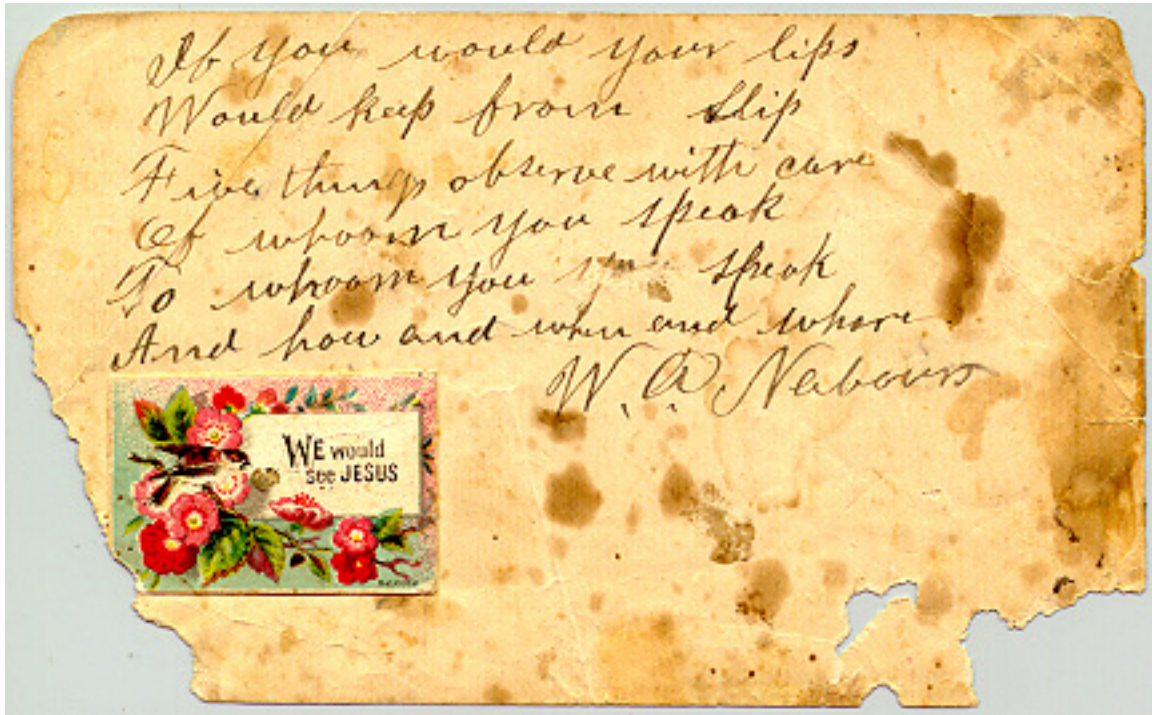 If you would your lips
Would keep from slip
Five things observe with care
Of whoom you speak
To whoom you speak
And how and when and whare
W. A. Nabours
WE would
see JESUS